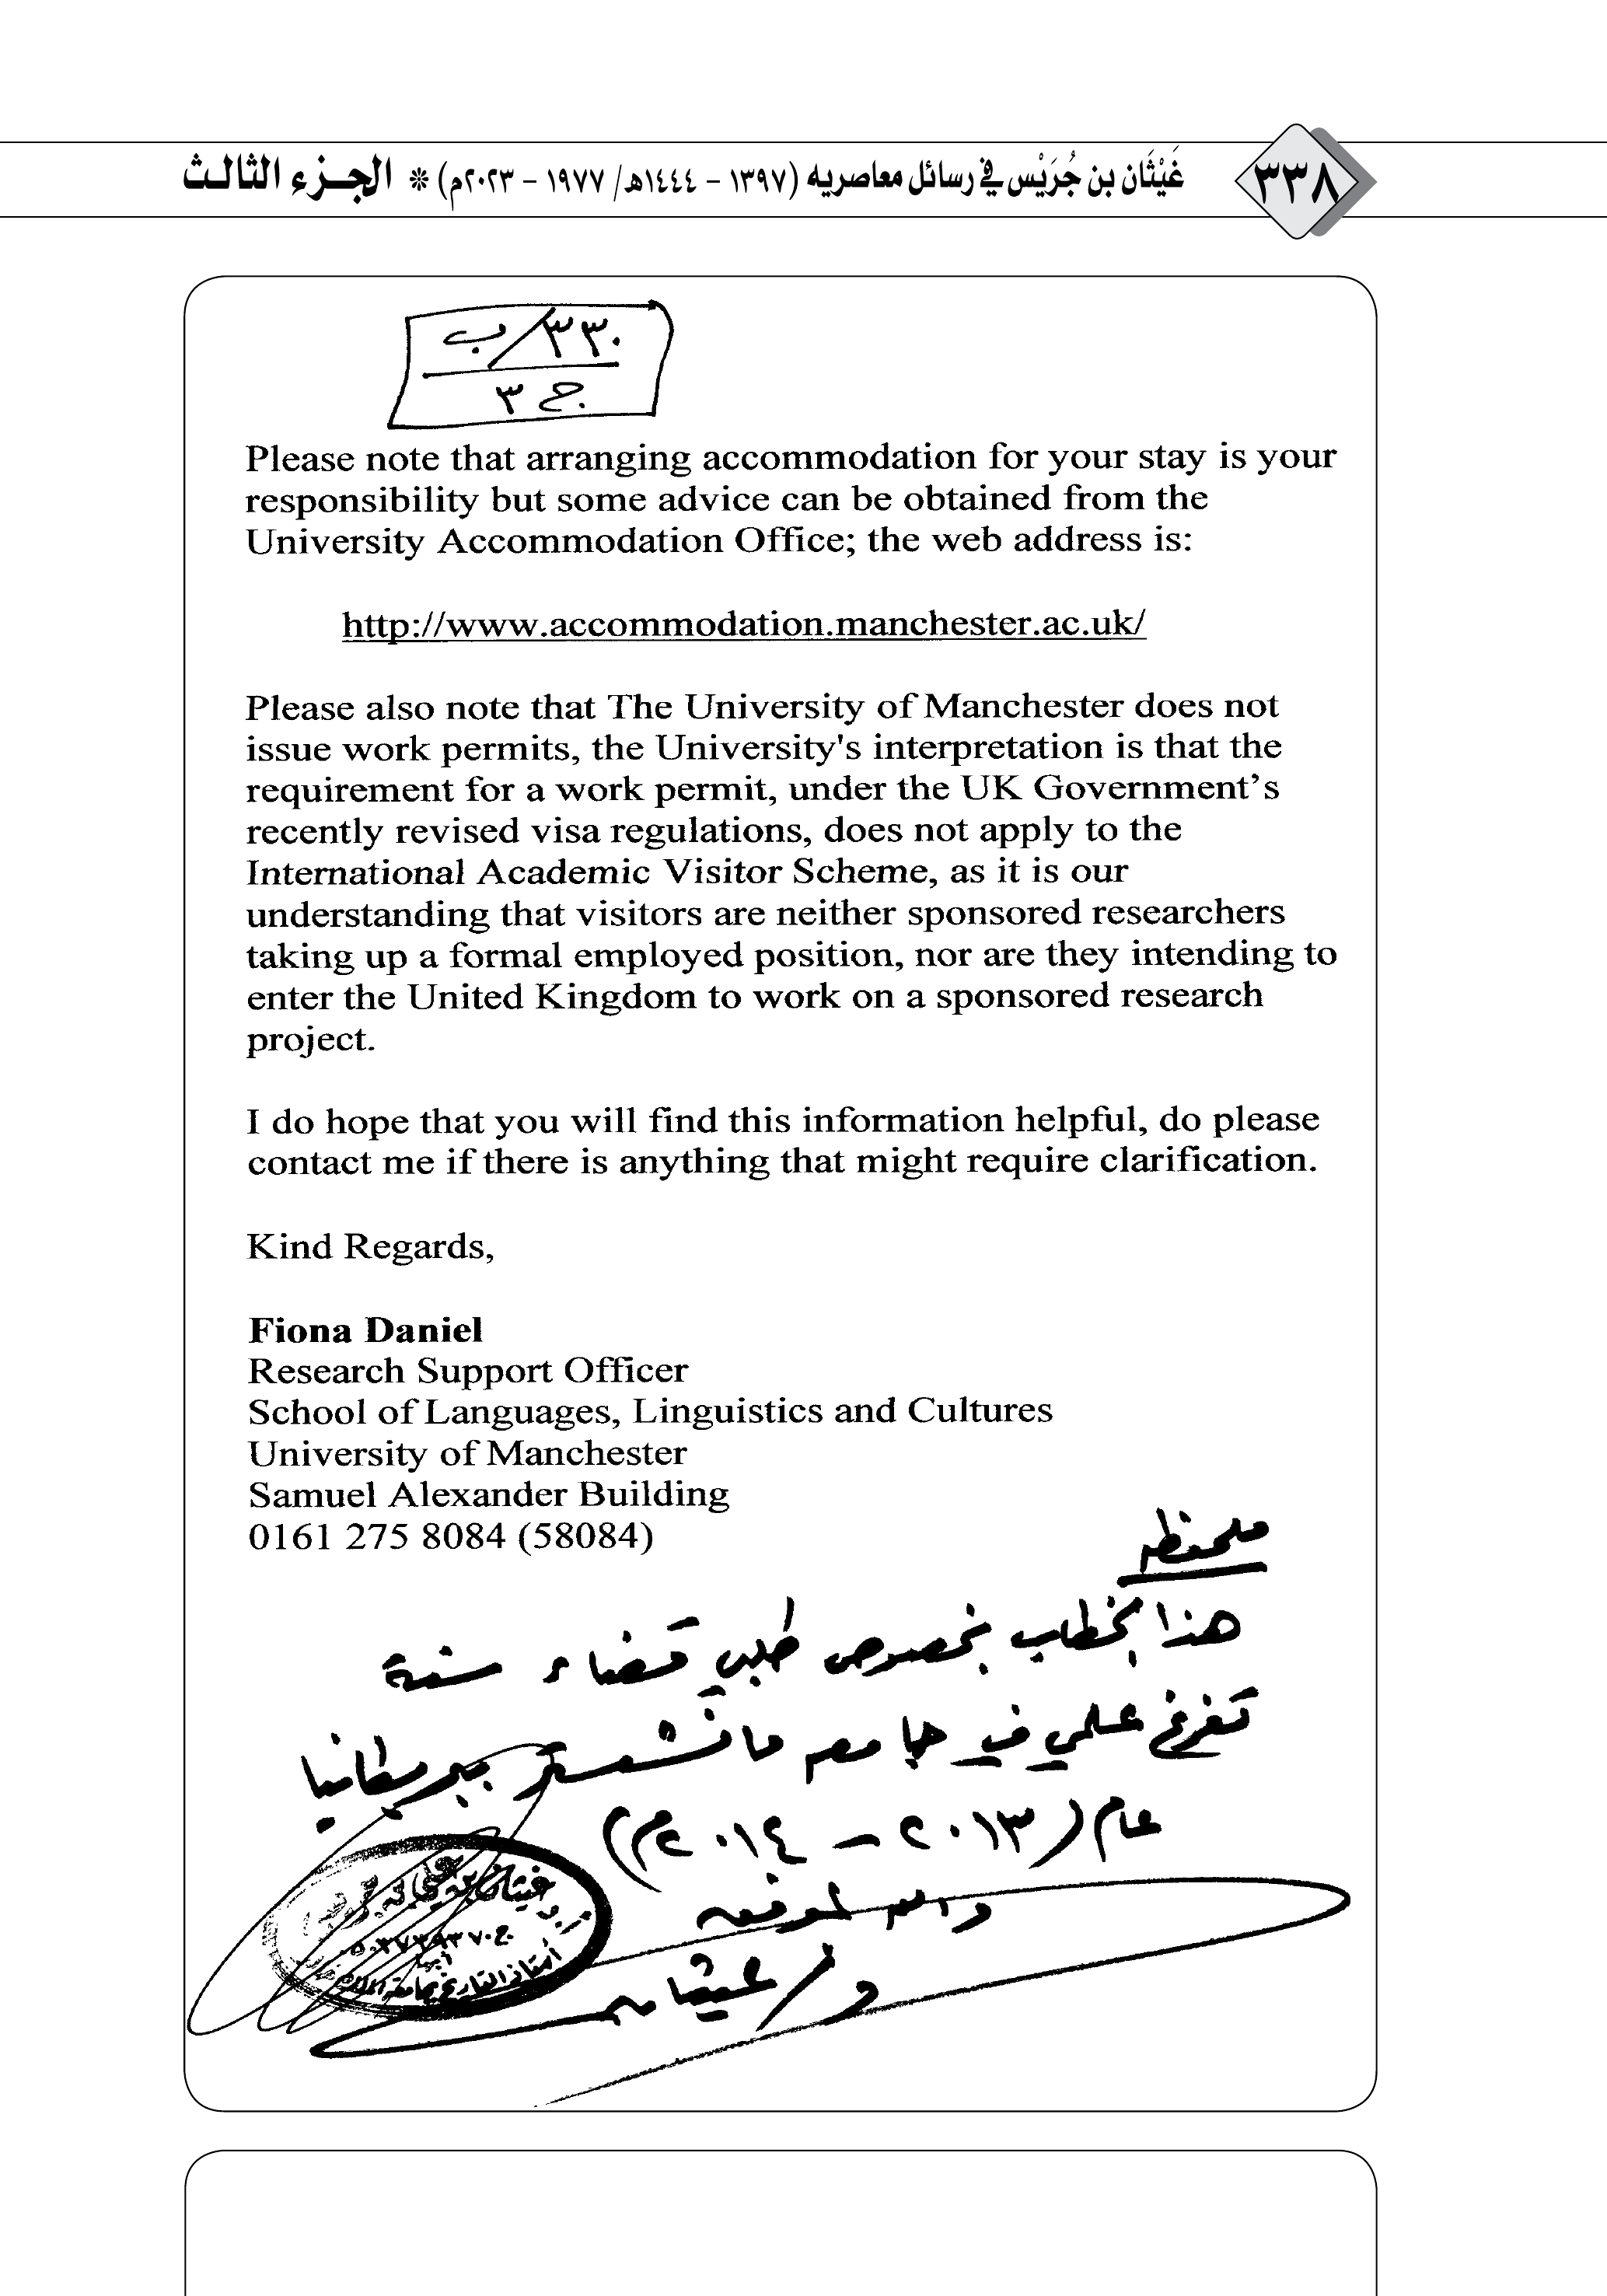 ٣٣٨
غَيْثَان بن جُرَيْس في رسائل معاصريه (١٣٩٧ – ١٤٤٤هـ/ ١٩٧٧ – ٢٠٢٣م) * الجـزء الثالـث
٣٣٠/ب
ج ٣
Please note that arranging accommodation for your stay is your
responsibility but some advice can be obtained from the
University Accommodation Office; the web address is:
http://www.accommodation.manchester.ac.uk/
Please also note that The University of Manchester does not
issue work permits, the University's interpretation is that the
requirement for a work permit, under the UK Government’s
recently revised visa regulations, does not apply to the
International Academic Visitor Scheme, as it is our
understanding that visitors are neither sponsored researchers
taking up a formal employed position, nor are they intending to
enter the United Kingdom to work on a sponsored research
project.
I do hope that you will find this information helpful, do please
contact me if there is anything that might require clarification.
Kind Regards,
Fiona Daniel
Research Support Officer
School of Languages, Linguistics and Cultures
University of Manchester
Samuel Alexander Building
0161 275 8084 (58084)
ملحوظه
هذا الخطاب بخصوص طلبي قضاء سنة
تفرغ علمي في جامعه مانشستر ببريطانيا
عام (٢٠١٣ – ٢٠١٤م)
والله الموفق
د/ غيثان
غيثان بن علي بن
أستاذ التاريخ بجامعة الملك